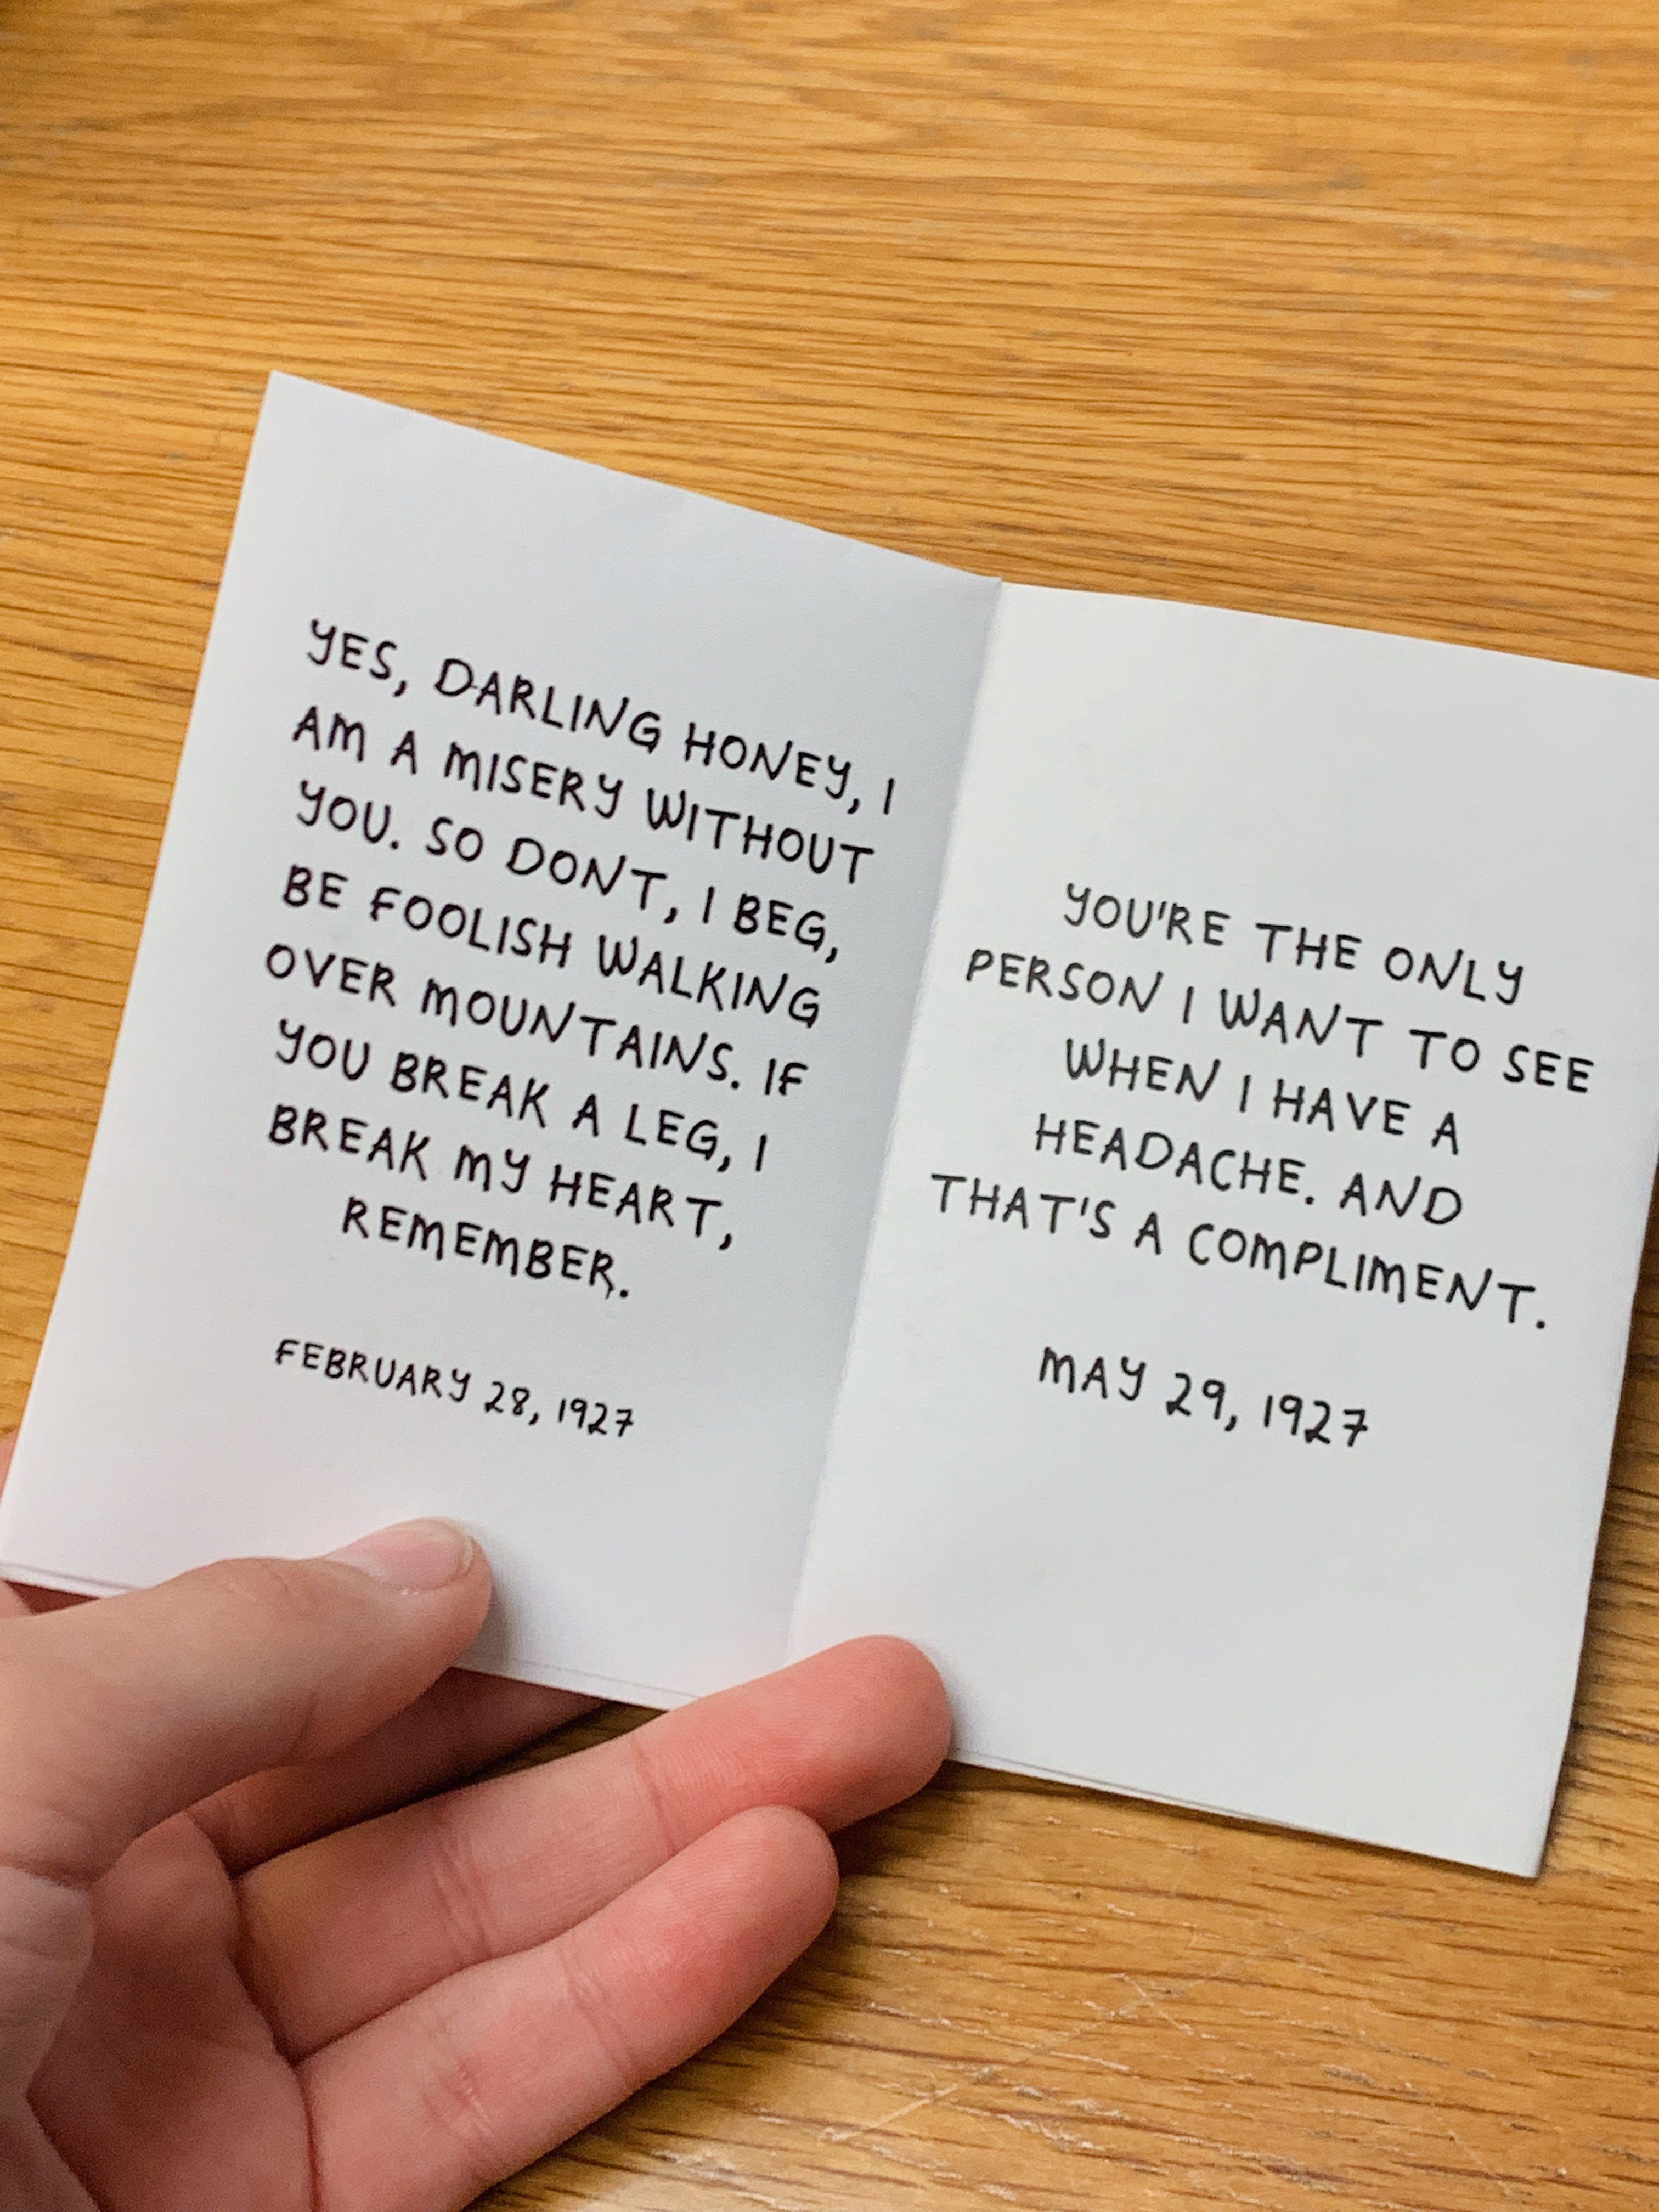 YES, DARLING HONEY, I
AM A MISERY WITHOUT
YOU. SO DONT, I BEG,
BE FOOLISH WALKING
OVER MOUNTAINS. IF
YOU BREAK A LEG, I
BREAK MY HEART,
REMEMBER.
FEBRUARY 28, 1927
YOU'RE THE ONLY
PERSON I WANT TO SEE
WHEN I HAVE A
HEADACHE. AND
THAT'S A COMPLIMENT.
MAY 29, 1927